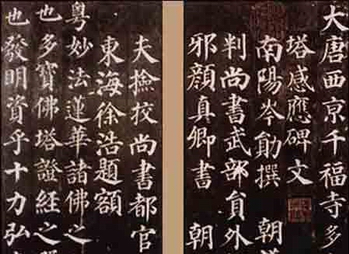 大唐西京千福寺多
塔感應碑文
南陽岑勛撰 朝
判尚書武部員外
邪顏真卿書 朝
夫撿挍尚書都官
東海徐浩題額
粵妙法蓮華諸佛之
也多寶佛塔證經之
也發明資乎十力弘